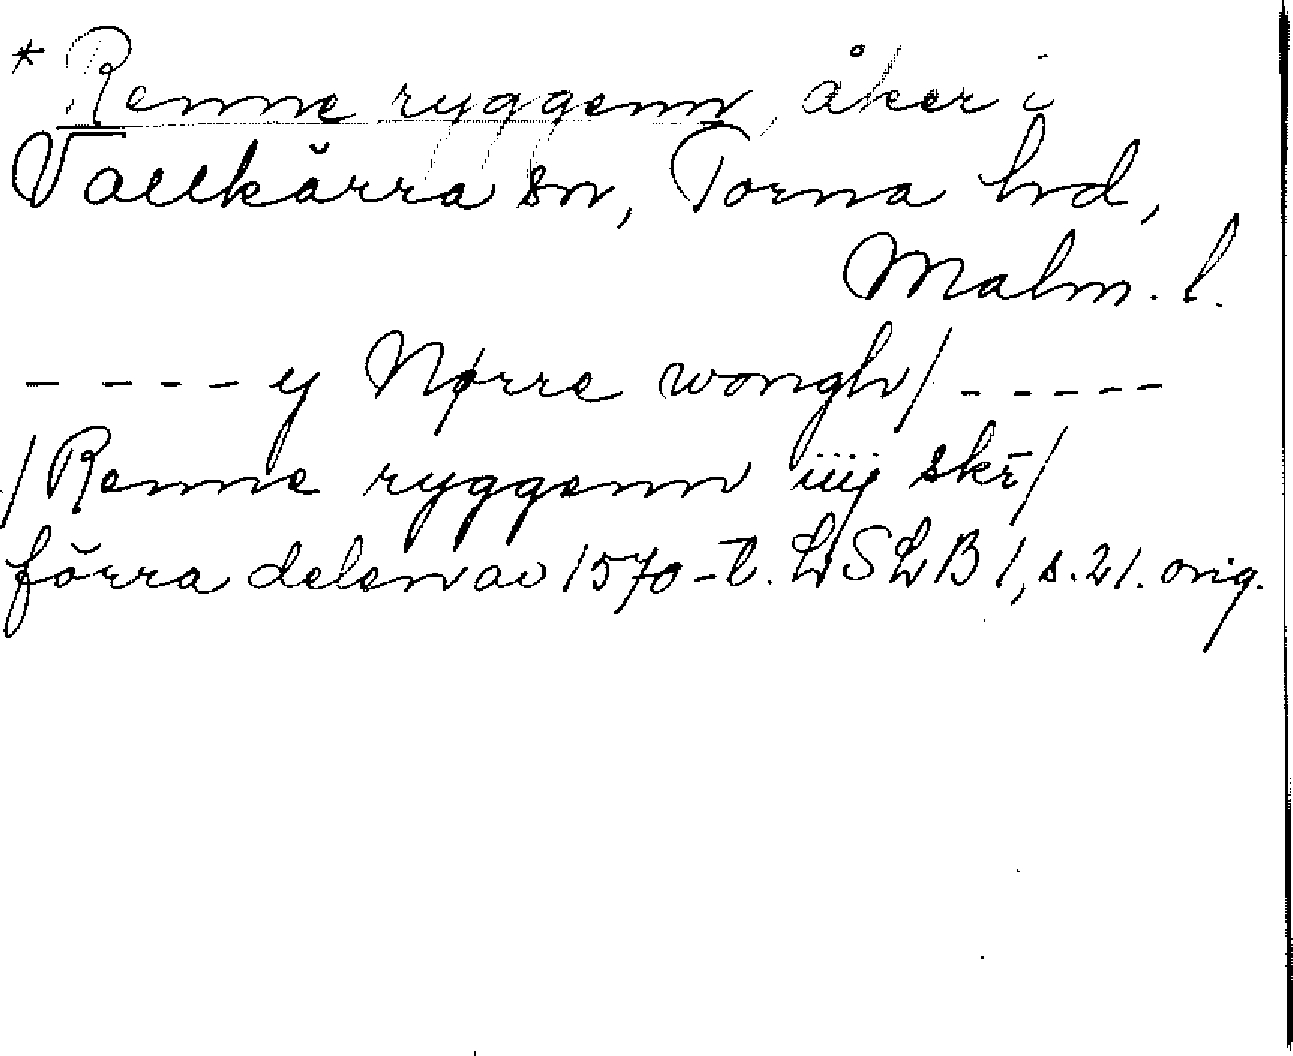 * Renne ryggenn, åker i
Vallkärra sn, Torna hd,
Malm. l.
- - - - y Nørre wongh/ - - - - -
/Renne ryggenn iiij skr̄/
förra delen av 1570-t. LSLB 1, s. 21. orig.